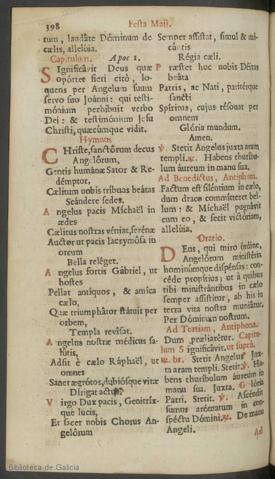 398 Festa Maii.
rum, laudáte Dóminum de
cælis, allelúia.
Capitulum. Apoc 1.
Significávit Deus quæ
opórtet fíeri citò, lo-
quens per Angelum suum
servo suo Joánni: qui testi-
mónium perhíbuit verbo
Dei: & testimónium Jesu
Christi, quæcúmque vidit.
Hymnus
Christe, sanctórum decus
Angelórum,
Gentis humánæ Sator & Re-
démptor,
Cælitum nobis tríbuas beátas
Scándere sedes.
Angelus pacis Míchaël in
ædes
Cælitus nostras véniat, serénæ
Auctor ut pacis lacrymósa in
orcum
Bella reléget.
Angelus fortis Gábriel, ut
hostes
Pellat antíquos, & amíca
cælo,
Quæ triumphátor státuit per
orbem,
Templa revísat.
Angelus nostræ médicus sa-
lútis,
Adsit è cælo Ráphaël, ut
omnes
Sanet ægrótos, dubiósque vitæ
Dírigat actus.
Virgo Dux pacis, Genitrix-
que lucis,
Et sacer nobis Chorus An-
gelórum
Semper assístat, simul & mi-
cántis
Régia cæli.
Præstet hoc nobis Déitas
beáta
Patris, ac Nati, paritérque
sancti
Spíritus, cujus résonat per
omnem
Glória mundum.
Amen.
℣. Stetit Angelus juxta aram
templi. ℟. Habens thuríbu-
lum áureum in manu sua.
Ad Benedictus, Antiphona.
Factum est siléntium in cælo,
dum draco commítteret bel-
lum: & Míchaël pugnávit
cum eo, & fecit victóriam,
allelúia.
Oratio.
Deus, qui miro órdine,
Angelórum ministéria
hominúmque dispénsas: con-
céde propítius; ut à quibus
tibi ministrántibus in cælo
semper assístitur, ab his in
terra vita nostra muniátur.
Per Dóminum nostrum.
Ad Tertiam, Antiphona.
Dum præliarétur. Capitu-
lum Significávit. ut supra.
℟. br. Stetit Angelus Jux-
ta aram templi. Stetit. ℣. Ha-
bens thuríbulum áureum in
manu sua. Juxta. Glória
Patri. Stetit. ℣. Ascéndit
fumus arómatum in con-
spéctu Dómini. ℟. De manu
Angeli.
Ad
Biblioteca de Galicia